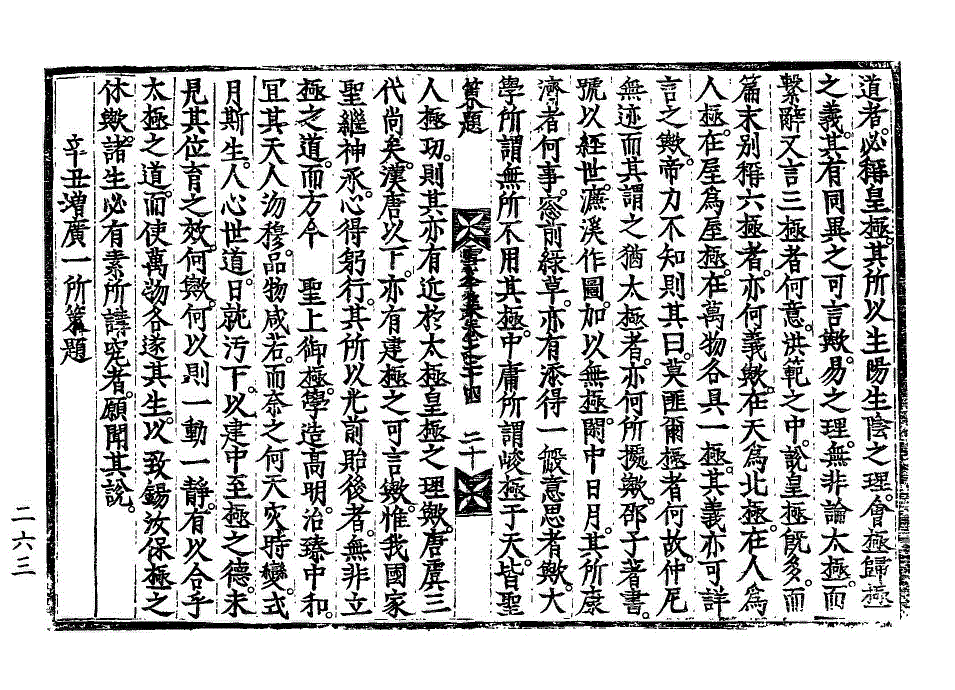 道者。必稱皇極。其所以生陽生陰之理。會極歸極
之義。其有同異之可言歟。易之理。無非論太極。而
繫辭又言三極者何意。洪範之中。說皇極旣多。而
篇末別稱六極者。亦何義歟。在天爲北極。在人爲
人極。在屋爲屋極。在萬物各具一極。其義亦可詳
言之歟。帝力不知則其曰。莫匪爾極者何故。仲尼
無迹而其謂之猶太極者。亦何所擬歟。邵子著書。
號以經世。濂溪作圖。加以無極。閑中日月。其所康
濟者何事。窓前綠草。亦有添得一般意思者歟。大
學所謂無所不用其極。中庸所謂峻極于天。皆聖
策題
卷之十四 二十
人極功。則其亦有近於太極皇極之理歟。唐虞三
代尙矣。漢唐以下。亦有建極之可言歟。惟我國家
聖繼神承。心得躬行。其所以光前貽後者。無非立
極之道。而方今 聖上御極。學造高明。治臻中和
宜其天人沕穆。品物咸若。而奈之何天灾時變。式
月斯生。人心世道。日就汚下。以建中至極之德。未
見其位育之效。何歟。何以則一動一靜。有以合乎
太極之道。而使萬物各遂其生。以致錫汝保極之
休歟。諸生必有素所講究者。願聞其說。
辛丑增廣一所策題
二六三